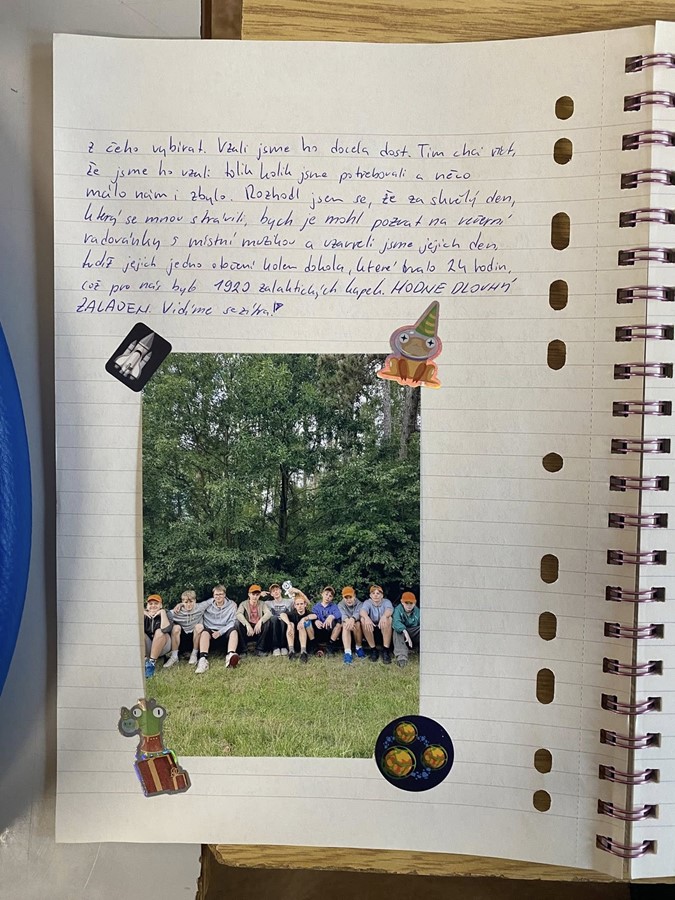 z čeho vybírat. Vzali jsme ho docela dost. Tím chci říct,
že jsme ho vzali tolik kolik jsme potřebovali a něco
málo nám i zbylo. Rozhodl jsem se, že za skvělý den,
který se mnou strávili, bych je mohl pozvat na večerní
radovánky s místní muzikou a uzavřeli jsme jejich den
totiž jejich jedno otočení kolem dokola, které trvalo 24 hodin,
což pro nás byb 1920 galaktických kapek. HODNĚ DLOUHÝ
Vidíme se zítra!